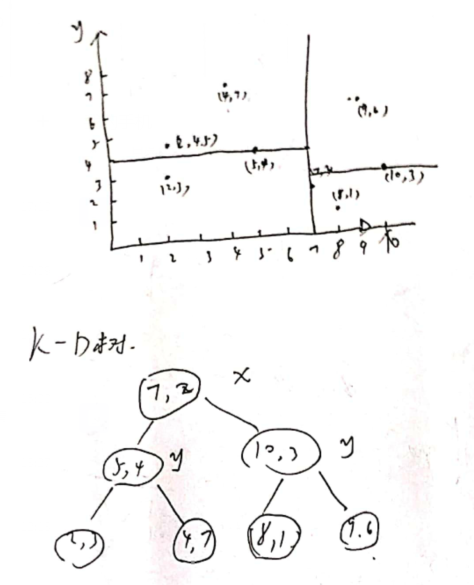 y
8
7
6
5
4
3
2
1
(4,7)
(2,4.5)
(5,4)
(2,3)
(9,6)
(10,3)
(8,1)
1 2 3 4 5 6 7 8 9 10
K-D树.
7,2 x
5,4 y 10,3 y
2,3 4,7 8,1 9.6